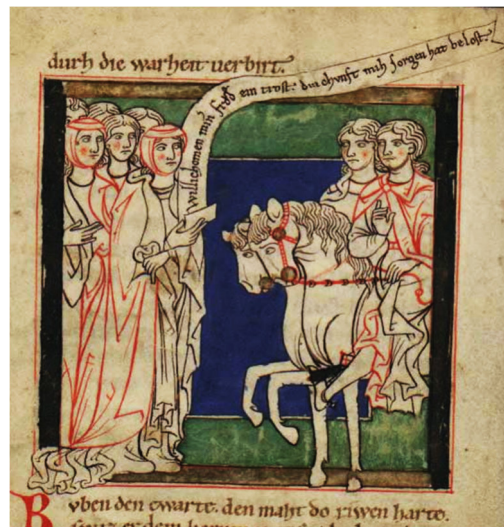 durh die warheit verbirt.
willichomen min fride ein trost. din chunft mih sorgen hat belost.
R
vben den ewarte. den maht do riwen harte.